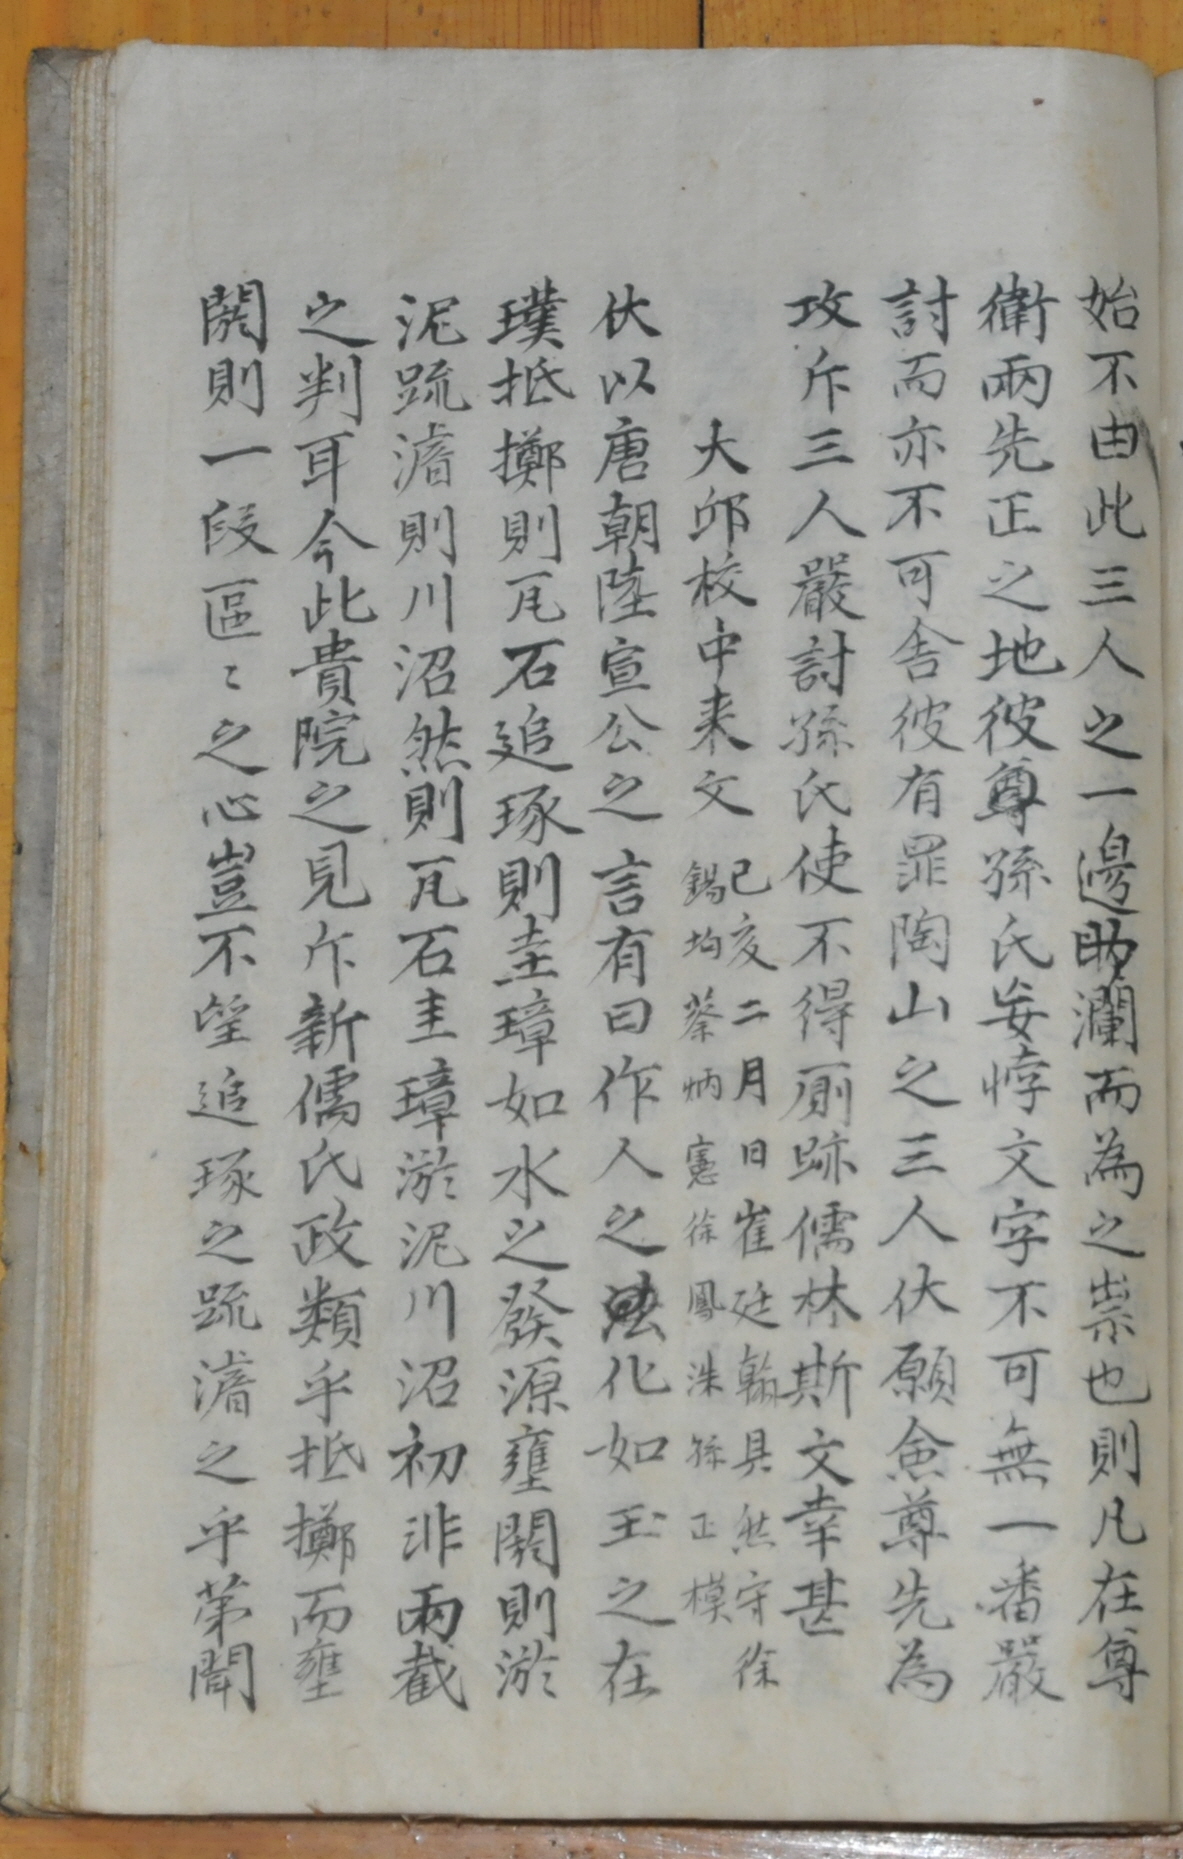 始不由此三人之一邊助瀾而為之祟也則凡在尊
衛兩先正之地彼尊孫氏妄悖文字不可無一番嚴
討而亦不可舍彼有罪陶山之三人伏願僉尊先為
攻斥三人嚴討孫氏使不得厠跡儒林斯文幸甚
大邱校中来文 己亥二月日崔廷翰具然守徐
錫均蔡炳憲徐鳳洙孫正模
伏以唐朝陸宣公之言有曰作人之法化如玉之在
璞抵擲則瓦石追琢則圭璋如水之發源壅閼則淤
泥疏濬則川沼然則瓦石圭璋淤泥川沼初非兩截
之判耳今此貴院之見斥新儒氏政類乎抵擲而壅
閼則一段區〻之心豈不望追琢之疏濬之乎第聞